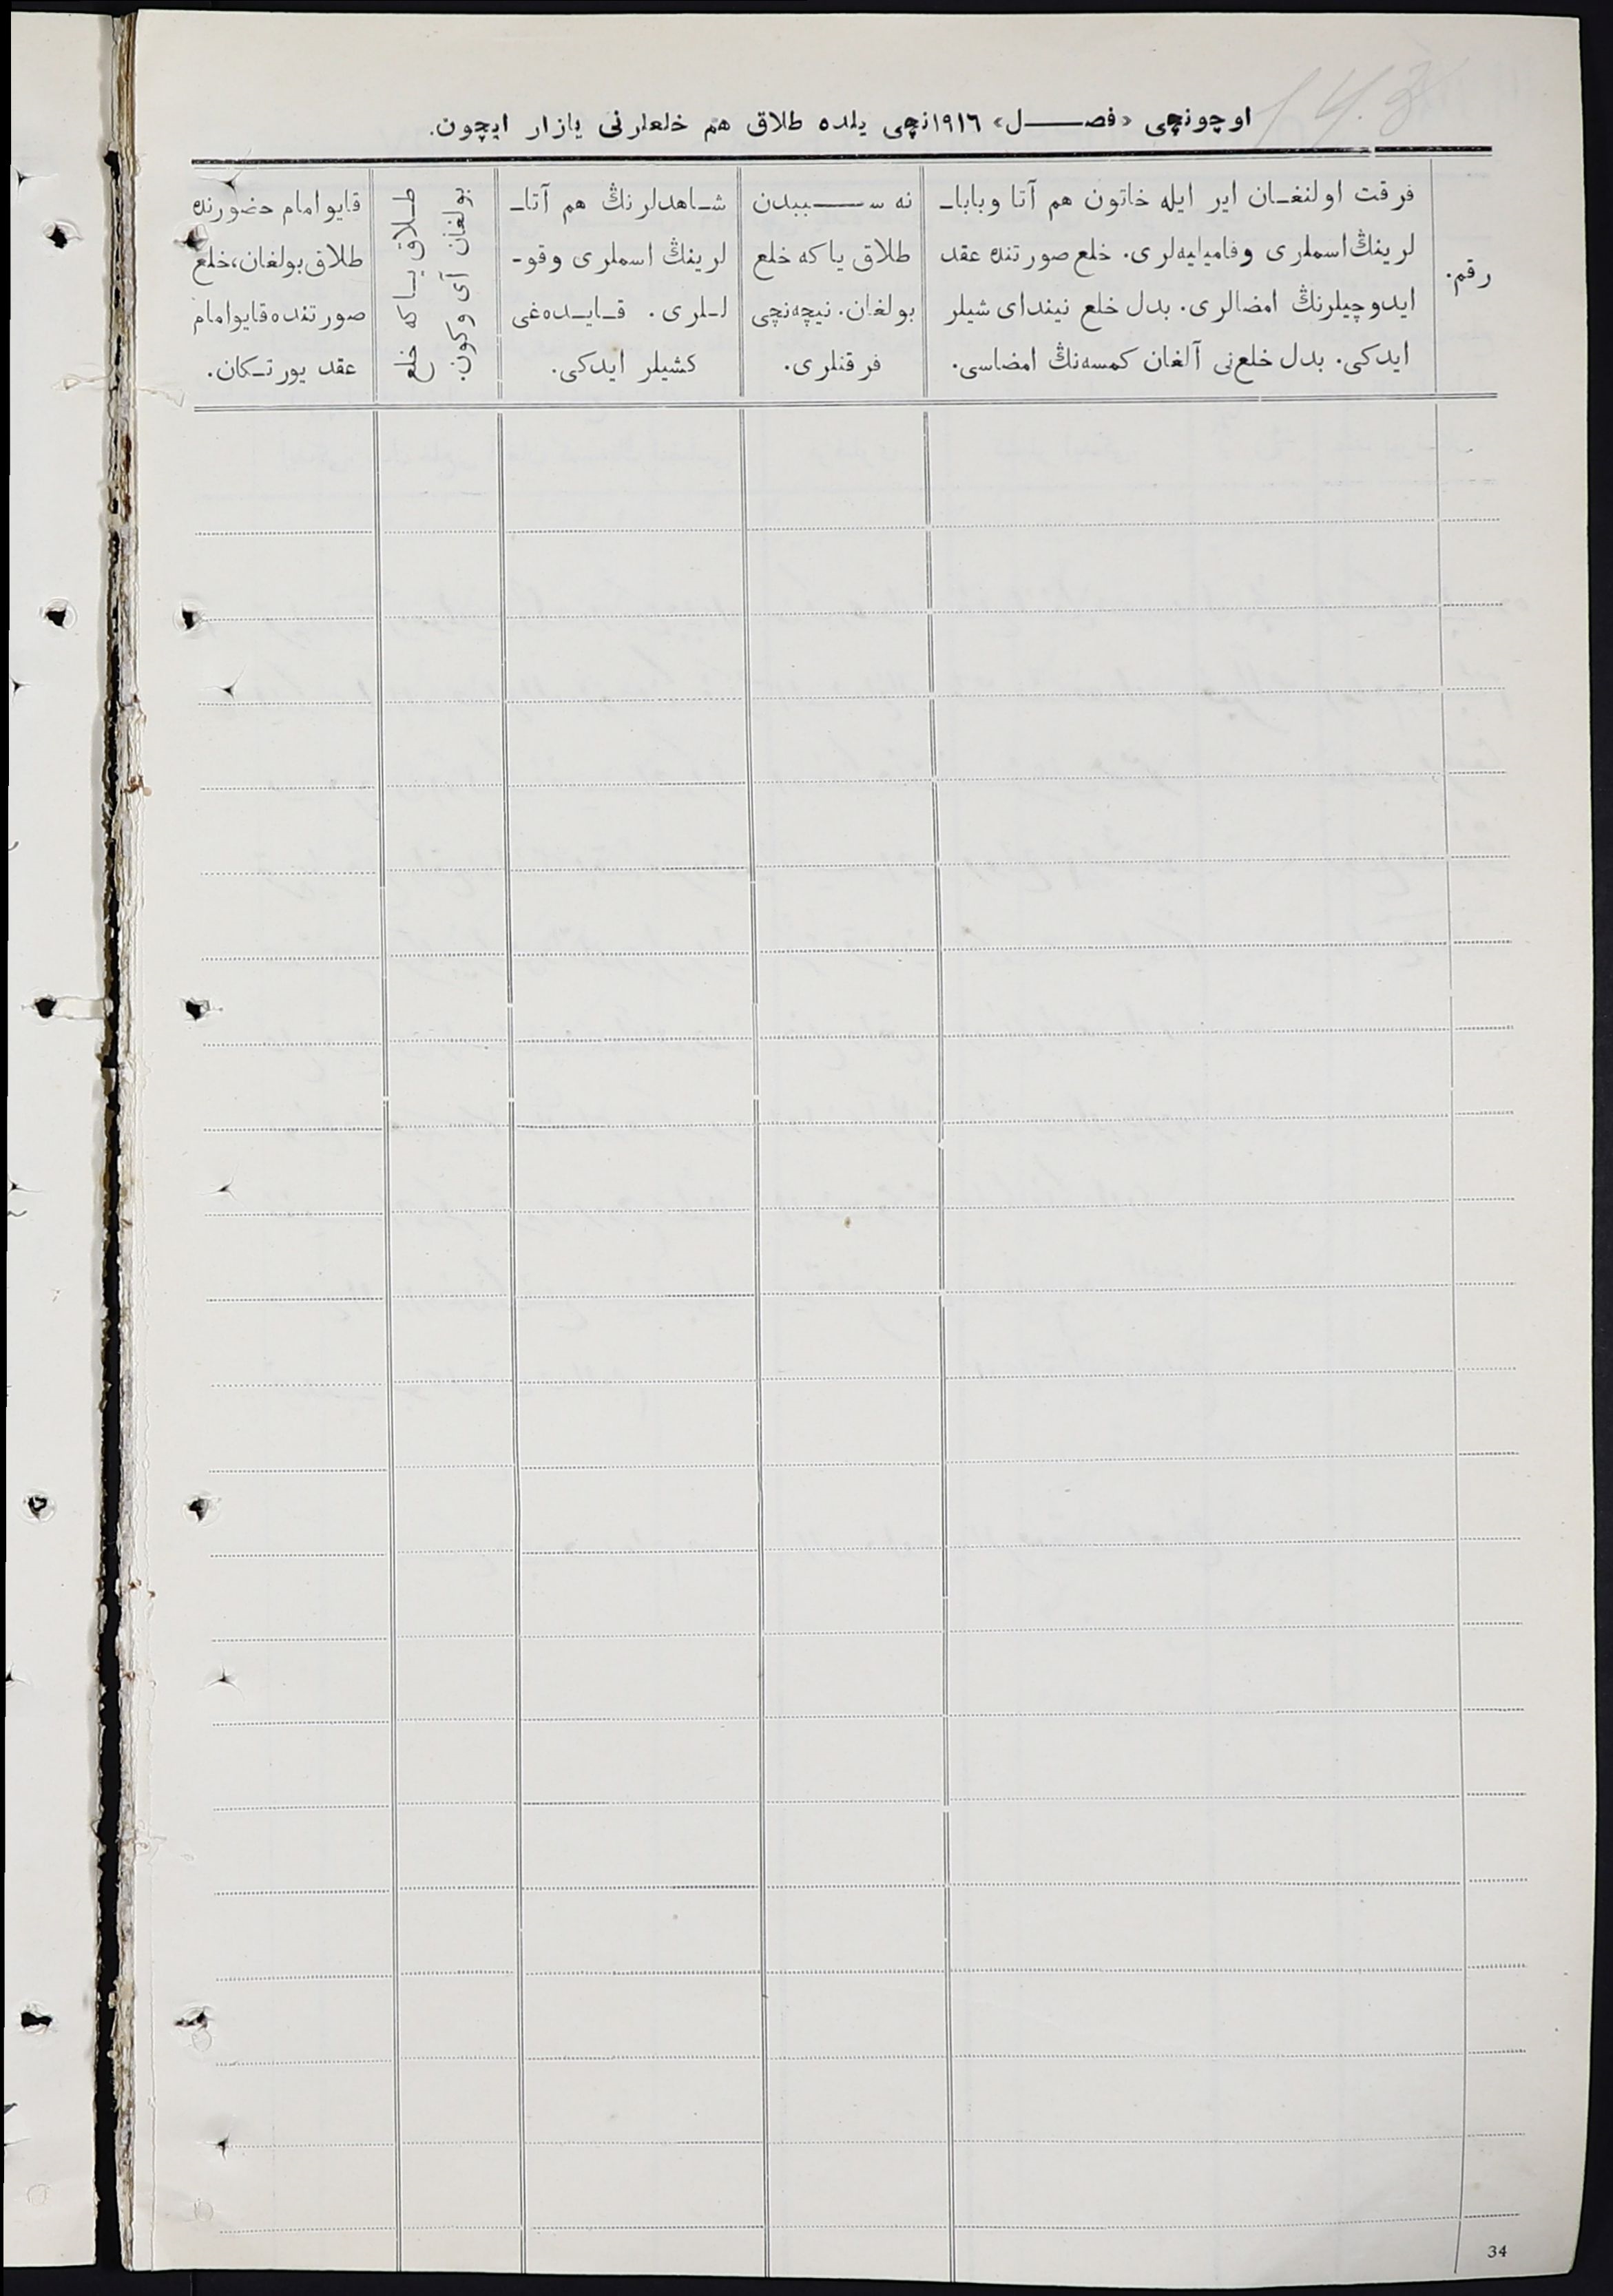 143
اوچونچی «فصل» ١٩١٦نچی یلده طلاق هم خلعلرنی یازار ایچون.
رقم.
فرقت اولنغان ایر ایله خاتون هم آتا وبابا-
لرینڭ اسملری وفامیلیه‌لری. خلع صورتنده عقد
ایدوچیلرنڭ امضالری. بدل خلع نیندای شیلر
ایدکی. بدل خلع‌نی آلغان کمسه‌نڭ امضاسی.
نه سببدن
طلاق یا که خلع
بولغان. نیچه‌نچی
فرقتلری.
شاهدلرنڭ هم آتا-
لرینڭ اسملری وقو-
للری. قایده‌غی
کشیلر ایدکی.
طلاق یا که خلع
بولغان آی وکون.
قایو امام حضورنده
طلاق بولغان، خلع
صورتنده قایو امام
عقد یورتکان.
34